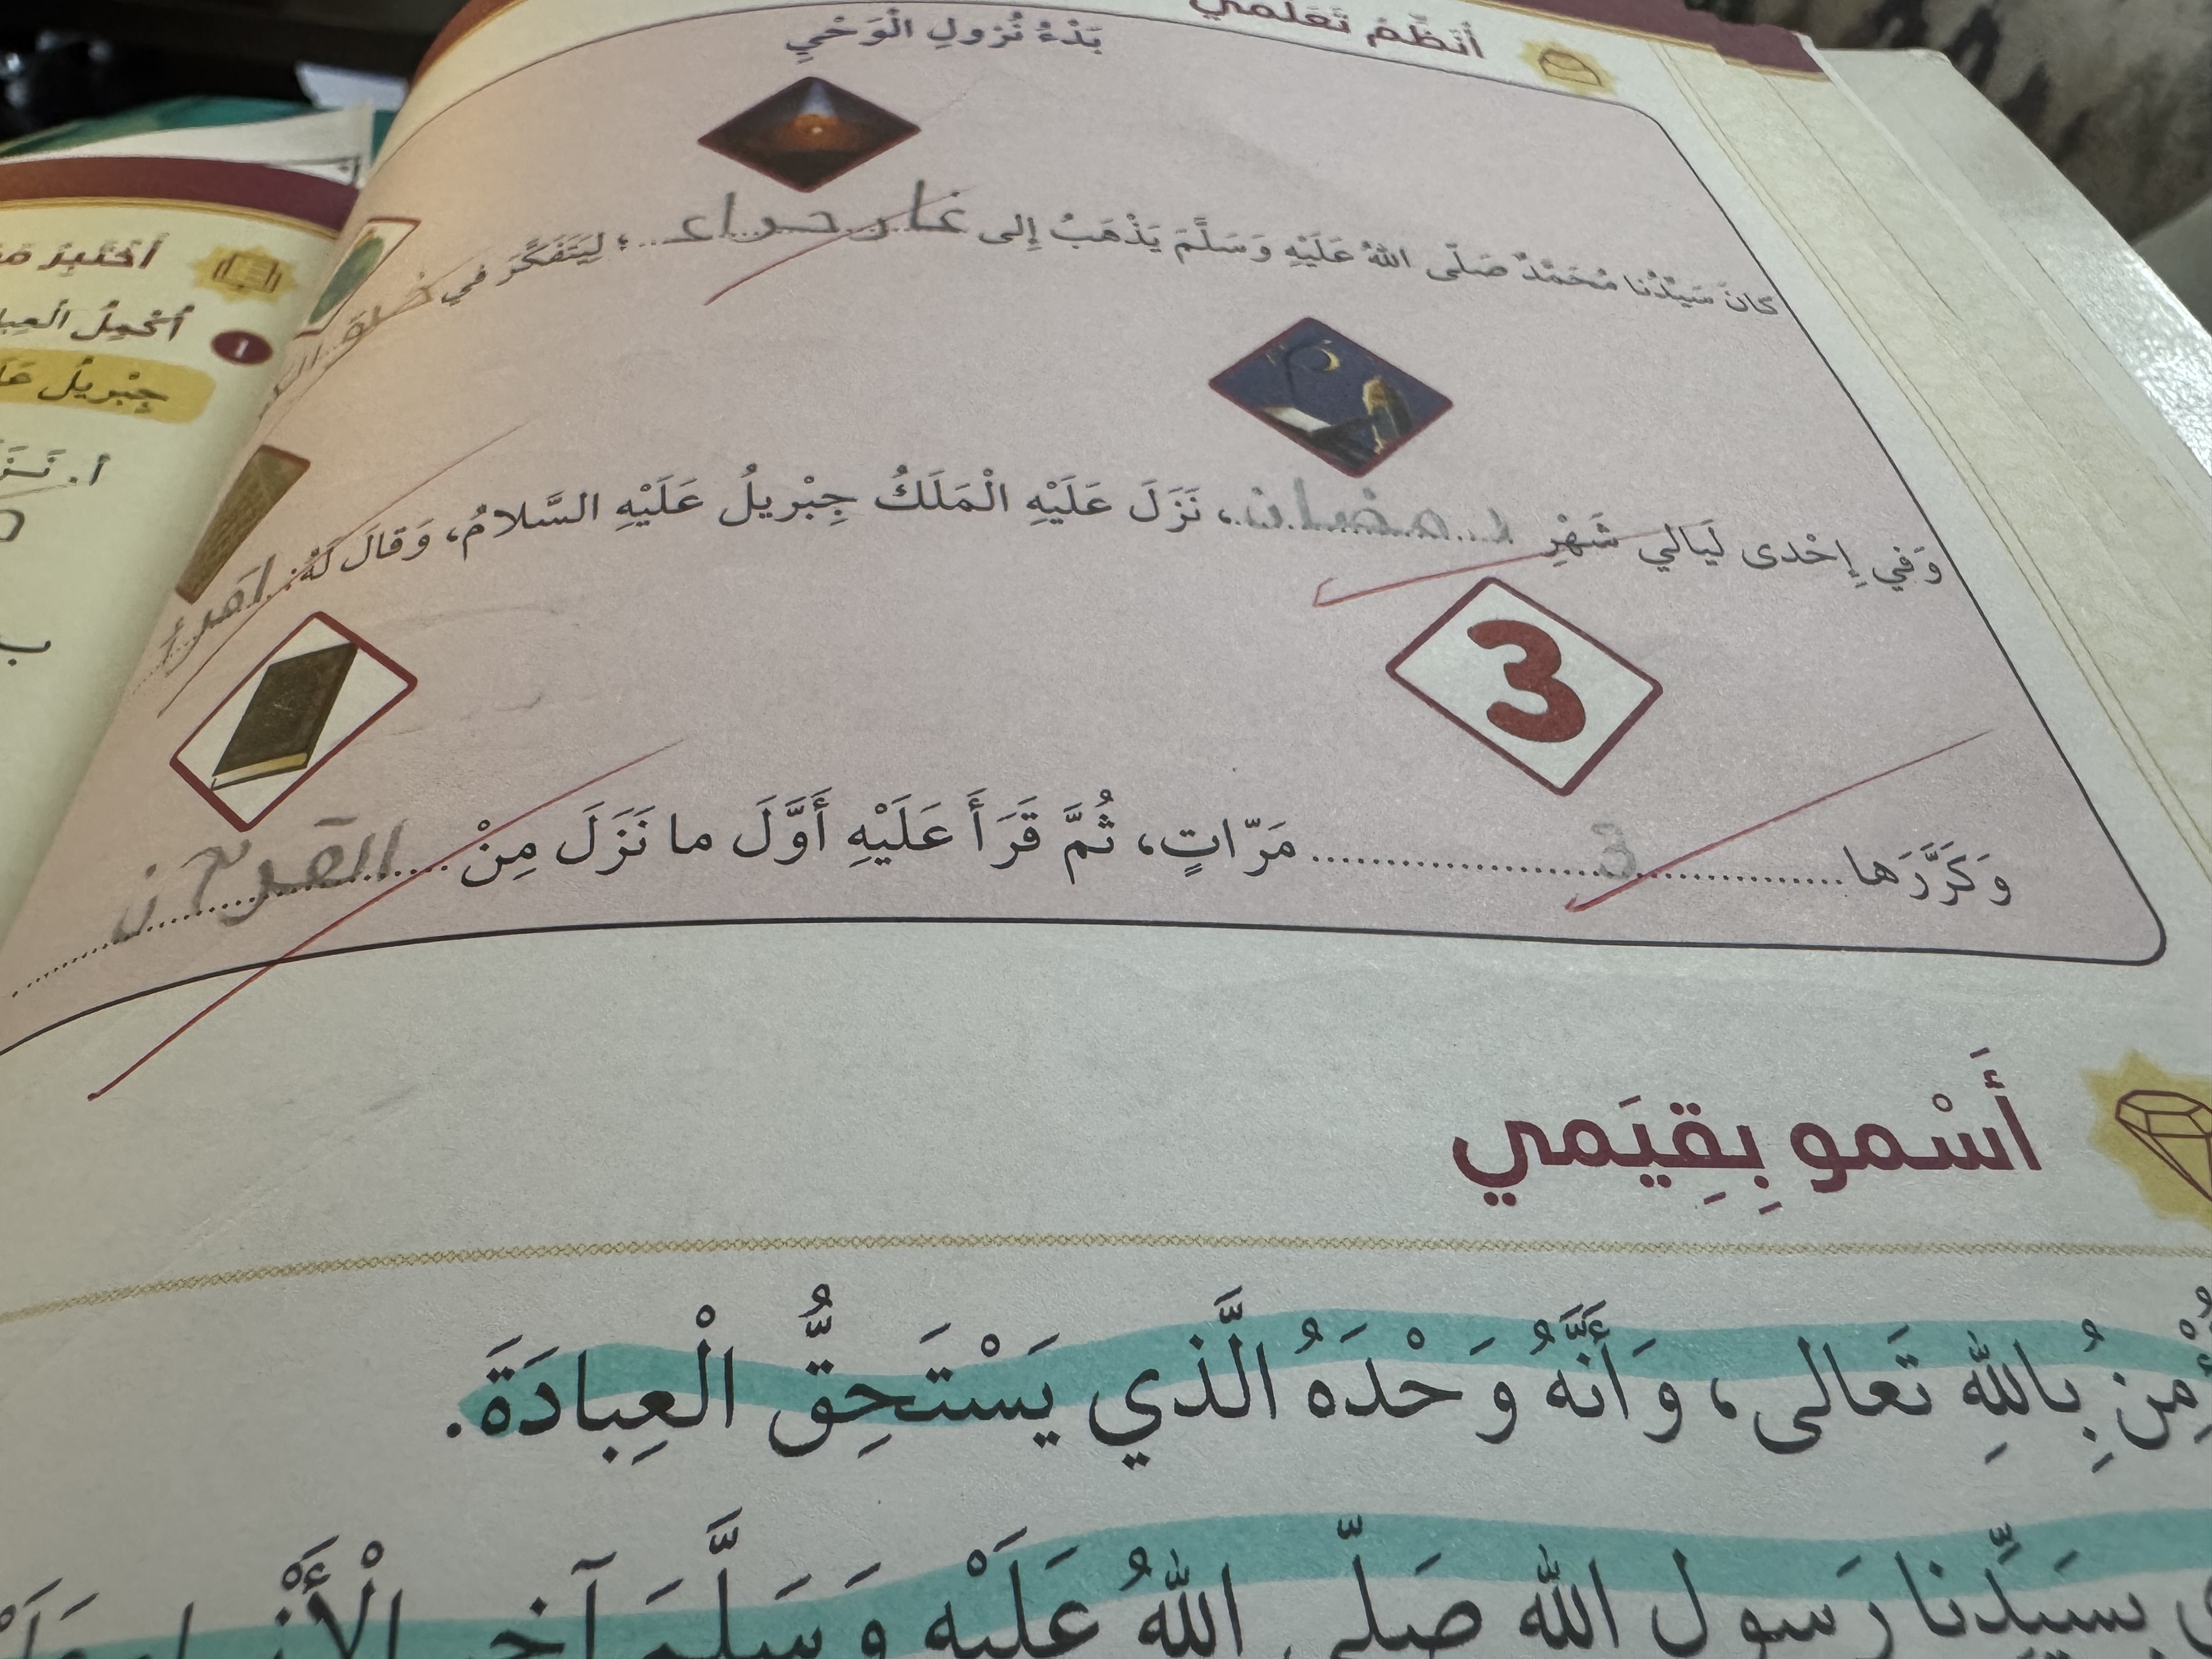 أُنَظِّمُ تَعَلُّمي
بَدْءُ نُزولِ الْوَحْيِ
كانَ سَيِّدُنا مُحَمَّدٌ صَلّى اللهُ عَلَيْهِ وَسَلَّمَ يَذْهَبُ إِلى غار حراء ؛ لِيَتَفَكَّرَ في
وَفي إِحْدى لَيالي شَهْرِ رمضان، نَزَلَ عَلَيْهِ الْمَلَكُ جِبْريلُ عَلَيْهِ السَّلامُ، وَقالَ لَهُ: اقرأ
3
وَكَرَّرَها 3 مَرّاتٍ، ثُمَّ قَرَأَ عَلَيْهِ أَوَّلَ ما نَزَلَ مِنْ القرآن
أَسْمو بِقِيَمي
بِاللهِ تَعالى، وَأَنَّهُ وَحْدَهُ الَّذي يَسْتَحِقُّ الْعِبادَةَ.
سَيِّدِنا رَسولِ اللهِ صَلّى اللهُ عَلَيْهِ وَسَلَّمَ آخِرِ
أَخْتَبِرُ
1 أُكْمِلُ
جِبْريلُ
أ.
ب